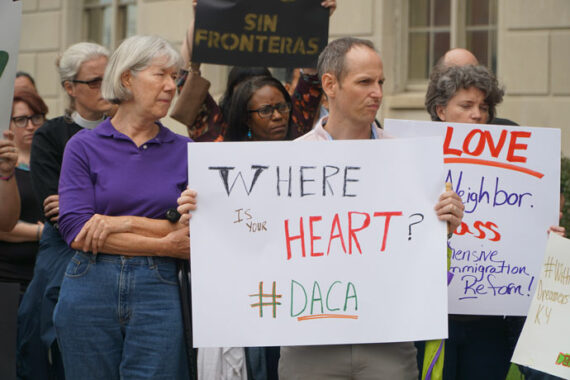 SIN
FRONTERAS
WHERE
IS YOUR
HEART?
#DACA
LOVE
Neighbor.
ensive
mmigration
Reform!
Dreamers
KY